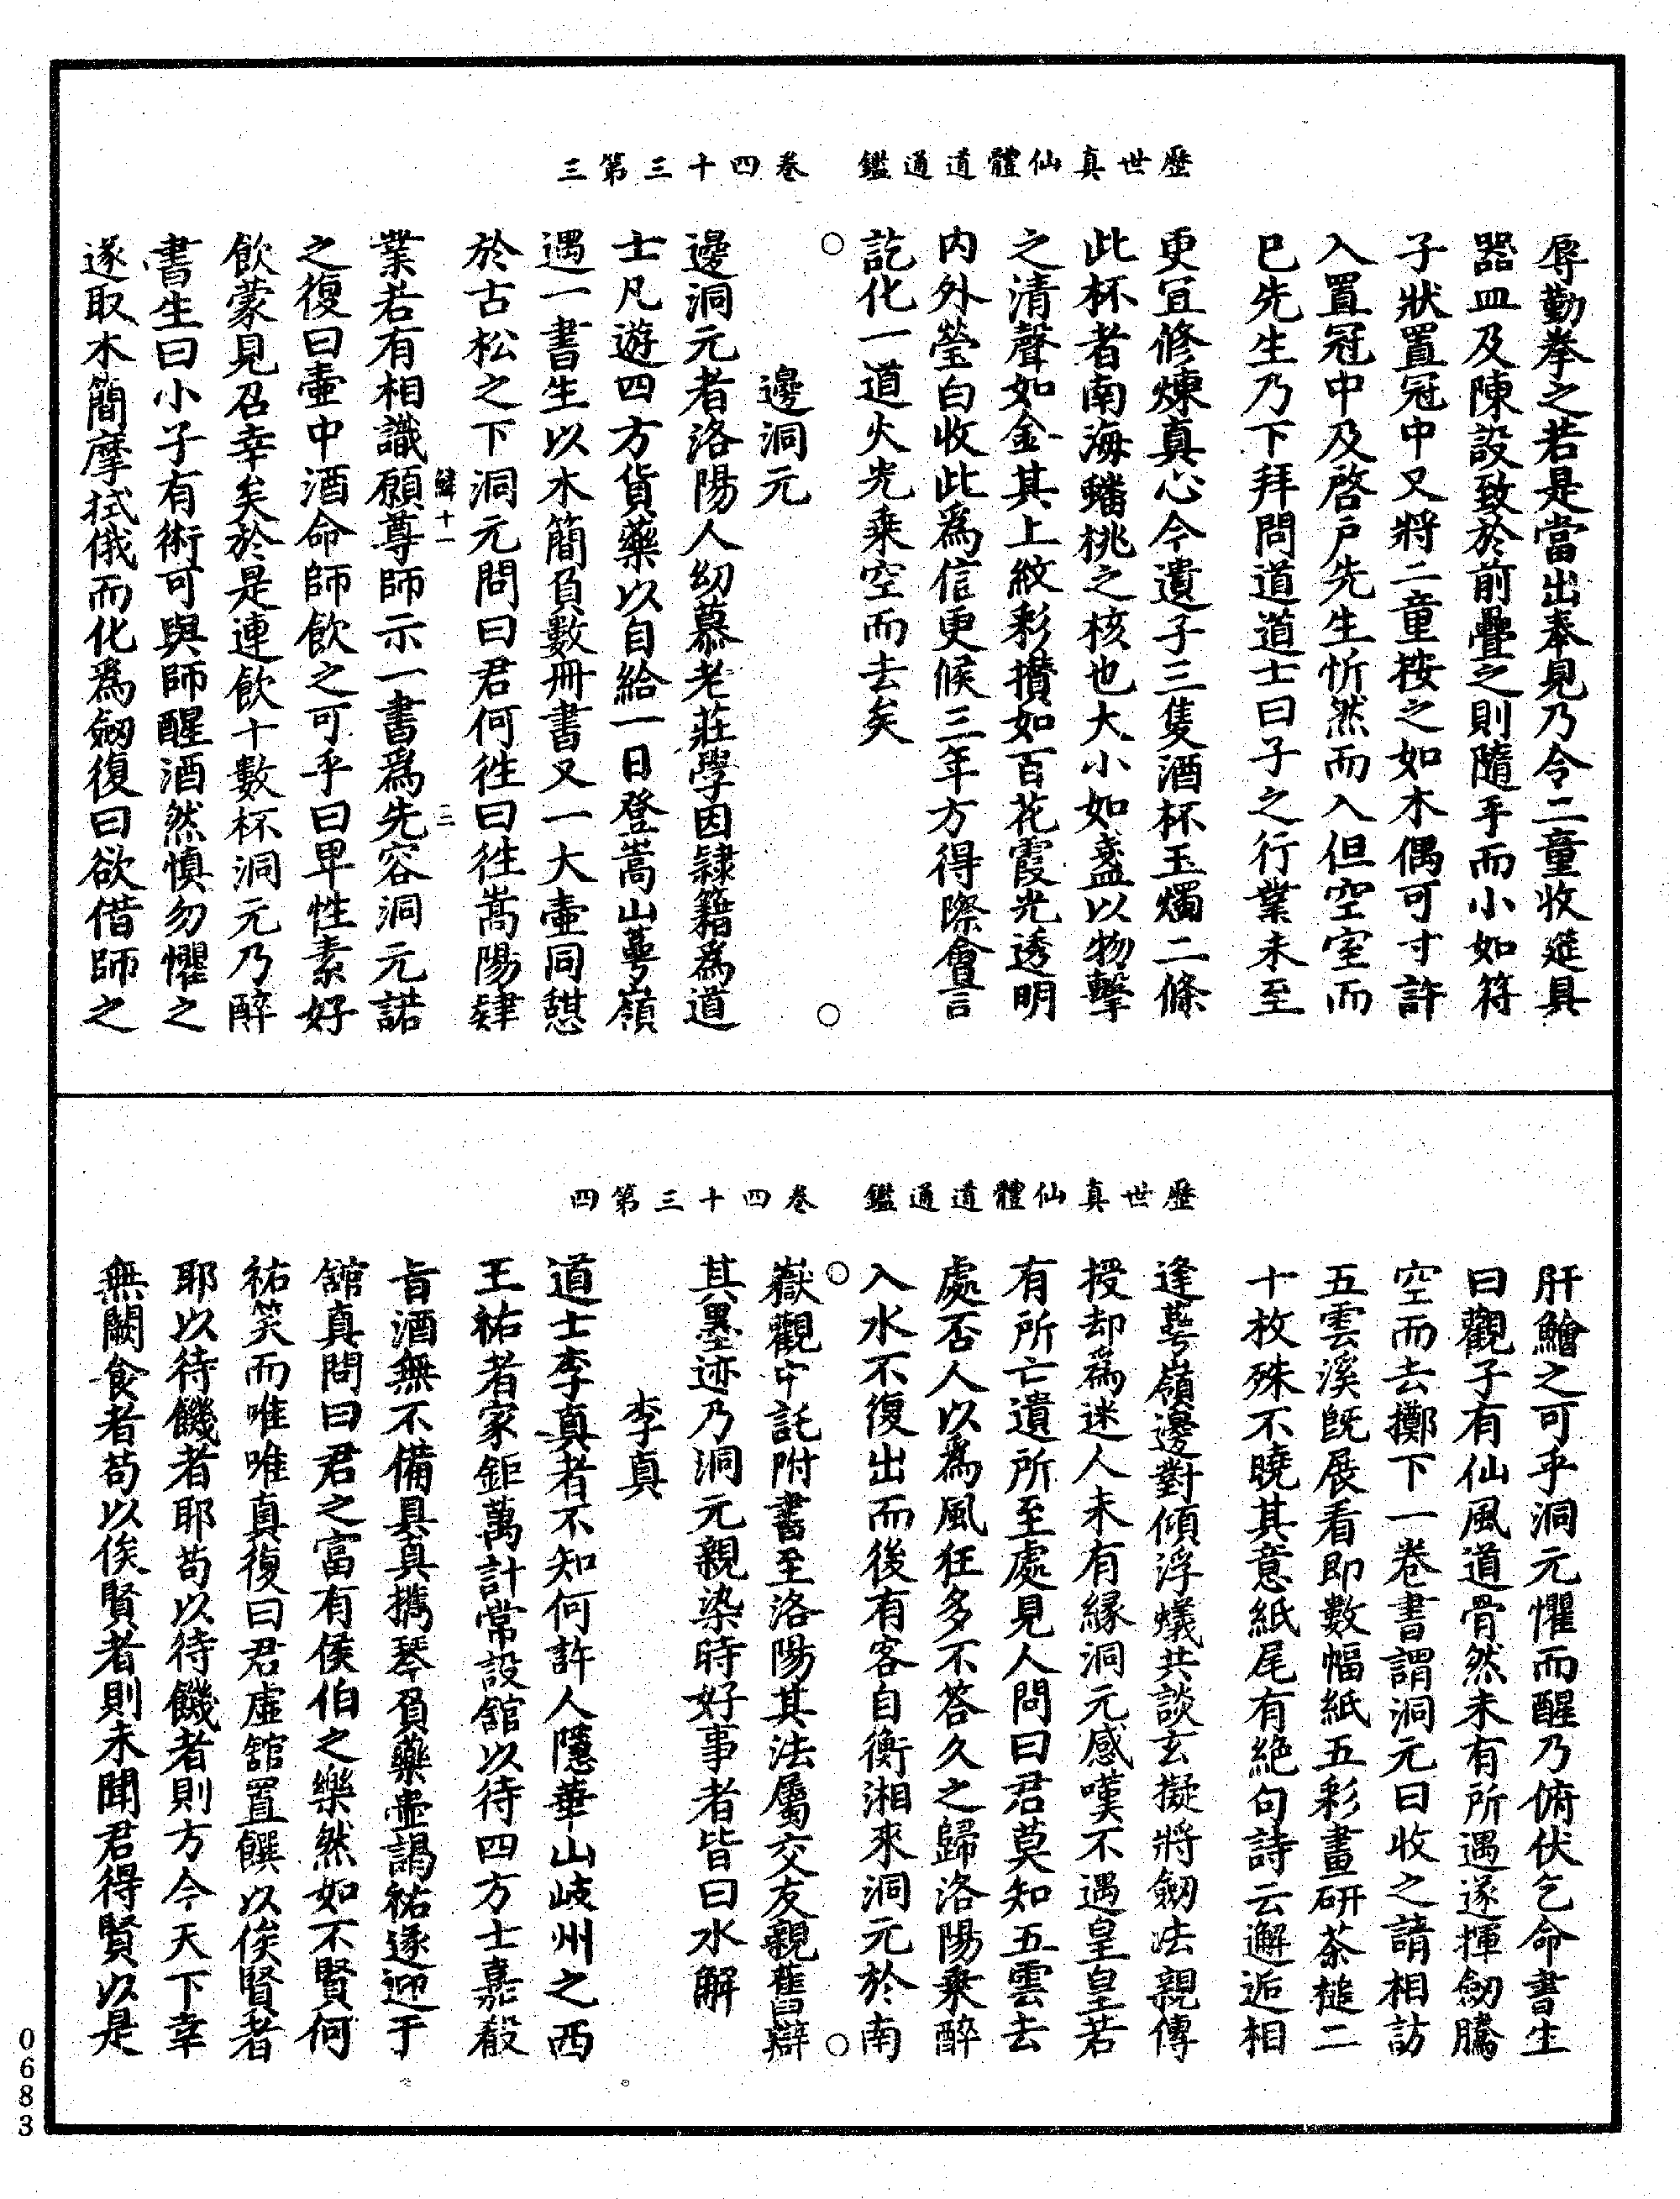 歷世真仙體道通鑑　卷四十三第三
辱勤拳之若是當出奉見乃令二童收筵具
器皿及陳設致於前疊之則隨手而小如符
子狀置冠中又將二童按之如木偶可寸許
入置冠中及啓戶先生忻然而入但空室而
已先生乃下拜問道道士曰子之行業未至
更宜修煉真心今遺子三隻酒杯玉燭二條
此杯者南海蟠桃之核也大小如盞以物擊
之清聲如金其上紋彩攢如百花霞光透明
内外瑩白收此爲信更候三年方得際會言
訖化一道火光乘空而去矣
○　○
邊洞元
邊洞元者洛陽人幼慕老莊學因隸籍爲道
士凡遊四方貨藥以自給一日登嵩山萼嶺
遇一書生以木簡負數冊書又一大壼同憇
於古松之下洞元問曰君何徃曰徃嵩陽肄
鱗十一　三
業若有相識願尊師示一書爲先容洞元諾
之復曰壼中酒命師飲之可乎曰畢性素好
飲蒙見召幸矣於是連飲十數杯洞元乃醉
書生曰小子有術可與師醒酒然慎勿懼之
遂取木簡摩拭俄而化爲劒復曰欲借師之
歷世真仙體道通鑑　卷四十三第四
肝鱠之可乎洞元懼而醒乃俯伏乞命書生
曰觀子有仙風道骨然未有所遇遂揮劒騰
空而去擲下一卷書謂洞元曰收之請相訪
五雲溪旣展看即數幅紙五彩畫研茶槌二
十枚殊不曉其意紙尾有絶句詩云邂逅相
逢萼嶺邊對傾浮蟻共談玄擬將劒法親傳
授却爲迷人未有緣洞元感嘆不遇皇皇若
有所亡遺所至處見人問曰君莫知五雲去
處否人以爲風狂多不答久之歸洛陽乘醉
入水不復出而後有客自衡湘來洞元於南
○　○
嶽觀中託附書至洛陽其法屬交友親舊辯
其墨迹乃洞元親染時好事者皆曰水解
李真
道士李真者不知何許人隱華山岐州之西
王祐者家鉅萬計常設舘以待四方士嘉殽
旨酒無不備具真携琴負藥壼謁祐遂迎于
舘真問曰君之富有侯伯之樂然如不賢何
祐笑而唯唯真復曰君虛舘置饌以俟賢者
耶以待饑者耶苟以待饑者則方今天下幸
無闕食者苟以俟賢者則未聞君得賢以是
0683